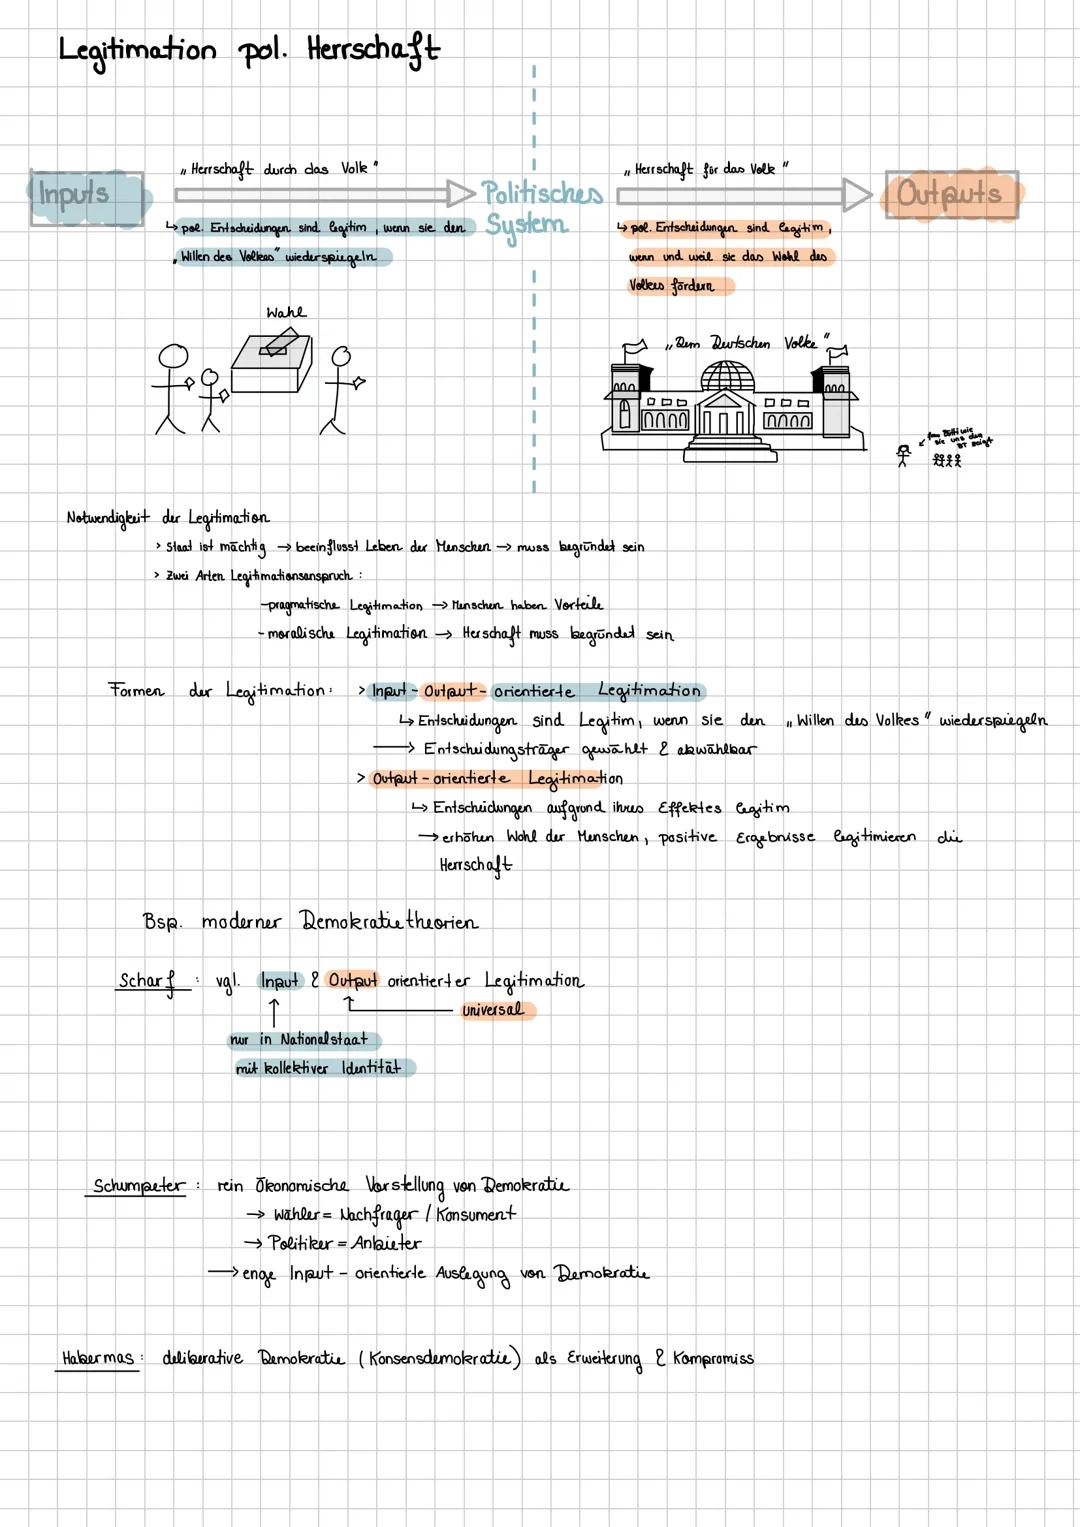 Legitimation pol. Herrschaft
„Herrschaft durch das Volk"
„Herrschaft für das Volk"
Inputs
Politisches
System
Outputs
↳ pol. Entscheidungen sind legitim, wenn sie den
„Willen des Volkes" wiederspiegeln
↳ pol. Entscheidungen sind legitim,
wenn und weil sie das Wohl des
Volkes fördern
Wahl
„Dem Deutschen Volke"
wie
sie uns den
BT zeigt
Notwendigkeit der Legitimation
> Staat ist mächtig → beeinflusst Leben der Menschen → muss begründet sein
> Zwei Arten Legitimationsanspruch :
- pragmatische Legitimation → Menschen haben Vorteile
- moralische Legitimation → Herschaft muss begründet sein
Formen der Legitimation: > Input - Output - orientierte Legitimation
↳ Entscheidungen sind Legitim, wenn sie den „Willen des Volkes" wiederspiegeln
→ Entscheidungsträger gewählt & abwählbar
> Output - orientierte Legitimation
↳ Entscheidungen aufgrund ihres Effektes legitim
→ erhöhen Wohl der Menschen, positive Ergebnisse legitimieren die
Herrschaft
Bsp. moderner Demokratietheorien
Scharf : vgl. Input & Output orientierter Legitimation
universal
nur in Nationalstaat
mit kollektiver Identität
Schumpeter : rein Ökonomische Vorstellung von Demokratie
→ Wähler = Nachfrager / Konsument
→ Politiker = Anbieter
→ enge Input - orientierte Auslegung von Demokratie
Habermas : deliberative Demokratie (Konsensdemokratie) als Erweiterung & Kompromiss